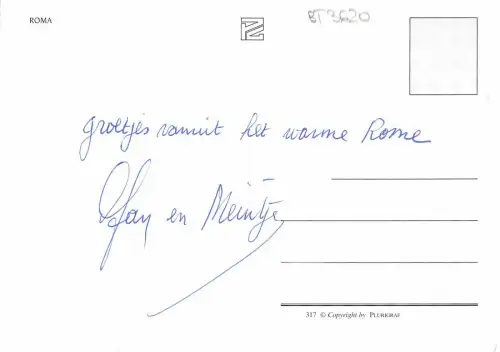 ROMA
BT3620
groetjes vanuit het warme Rome
en Meintje
317 © Copyright by PLURIGRAF